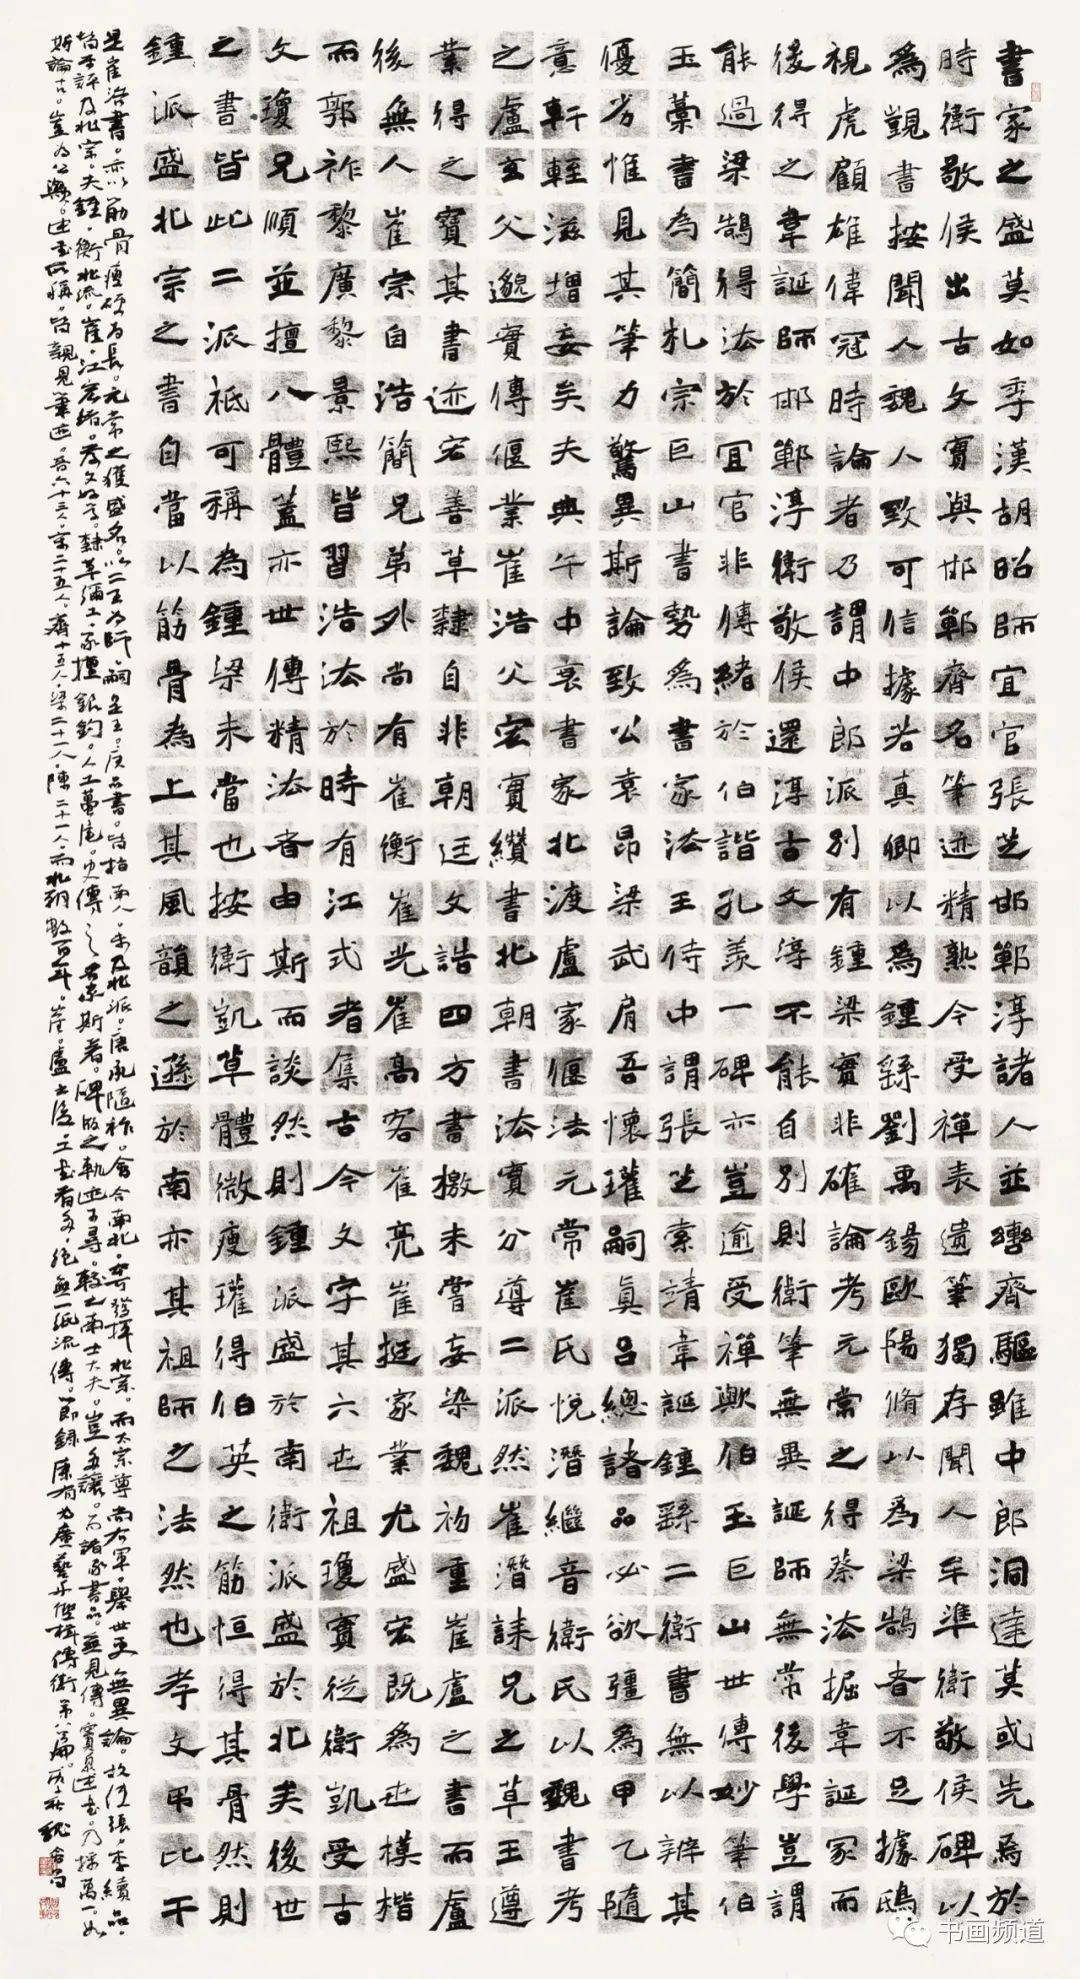 書家之盛莫如季漢胡昭師宜官張芝邯鄲淳諸人並轡齊驅雖中郎洞達莫或先焉於
時衛敬侯出古文實與邯鄲齊名筆迹精熟今受禪表遺筆獨存聞人牟準衛敬侯碑以
為覬書按聞人魏人致可信據若真卿以為鍾繇劉禹錫歐陽脩以為梁鵠者不足據鴟
視虎顧雄偉冠時論者乃謂中郎派別有鍾梁實非確論考元常之得蔡法掘韋誕冢而
後得之韋誕師邯鄲淳衛敬侯還淳古文淳不能自別則衛筆無異誕師無常後學豈謂
能過梁鵠得法於宜官非傳緒於伯喈孔羨一碑亦豈逾受禪歟伯玉巨山世傳妙筆伯
玉藁書為簡札宗巨山書勢為書家法王侍中謂張芝索靖韋誕鍾繇二衛書無以辨其
優劣惟見其筆力驚異斯論致公袁昂梁武肩吾懷瓘嗣真呂總諸品必欲彊為甲乙隨
意軒輊滋增妄矣夫典午中衰書家北渡盧家偃法元常崔氏悅潛繼音衛氏以魏書考
之盧玄父邈實傳偃業崔浩父宏實纘書北朝書法實分導二派然崔潛誄兄之草王遵
業得之寶其書迹宏善草隸自非朝廷文誥四方書檄未嘗妄染魏初重崔盧之書而盧
後無人崔宗自浩簡兄弟外尚有崔衡崔光崔高客崔亮崔挺家業尤盛宏既為世模楷
而郭祚黎廣黎景熙皆習浩法於時有江式者集古今文字其六世祖瓊實從衛凱受古
文瓊兄順並擅八體蓋亦世傳精法者由斯而談然則鍾派盛於南衛派盛於北矣後世
之書皆此二派祗可稱為鍾梁未當也按衛凱草體微瘦瓘得伯英之筋恒得其骨然則
鍾派盛北宗之書自當以筋骨為上其風韻之遜於南亦其祖師之法然也孝文弔比干
是崔浩書。亦以筋骨瘦硬為長。元常之獲盛名。以二王為師。嗣庾品書。皆指南人。未及北派。唐承隋祚。會合南北。發揮北宗。而太宗尊尚右軍。舉世更無異論。故張李續品。
皆評及北宗。夫鍾、衛北流。崔、江宏緒。孝文好學。隸草彌工。家擅銀鉤。人工蠆尾。史傳之斯著。碑版之軌迹可尋。較之南士大夫。豈多讓。而諸家書品。無見傳。竇臮述書。乃採萬一。如
斯論古。豈為公歟。述書所稱。皆親見筆迹。晉六十三人。宋二十五人。齊十五人。梁二十一人。陳二十一人。而北朝數百年。崔盧之後。工書者多。絕無一紙流傳。節錄康有為廣藝舟雙楫傳衛第八篇。
书画频道